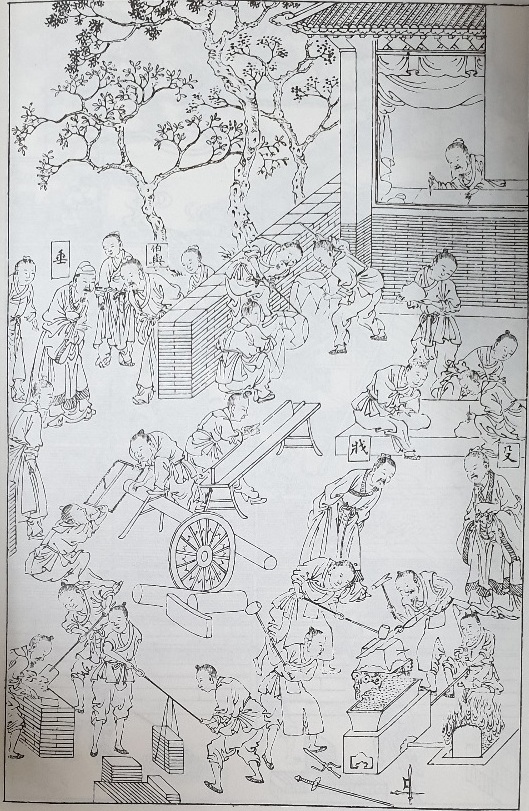 垂
伯與
戕
殳